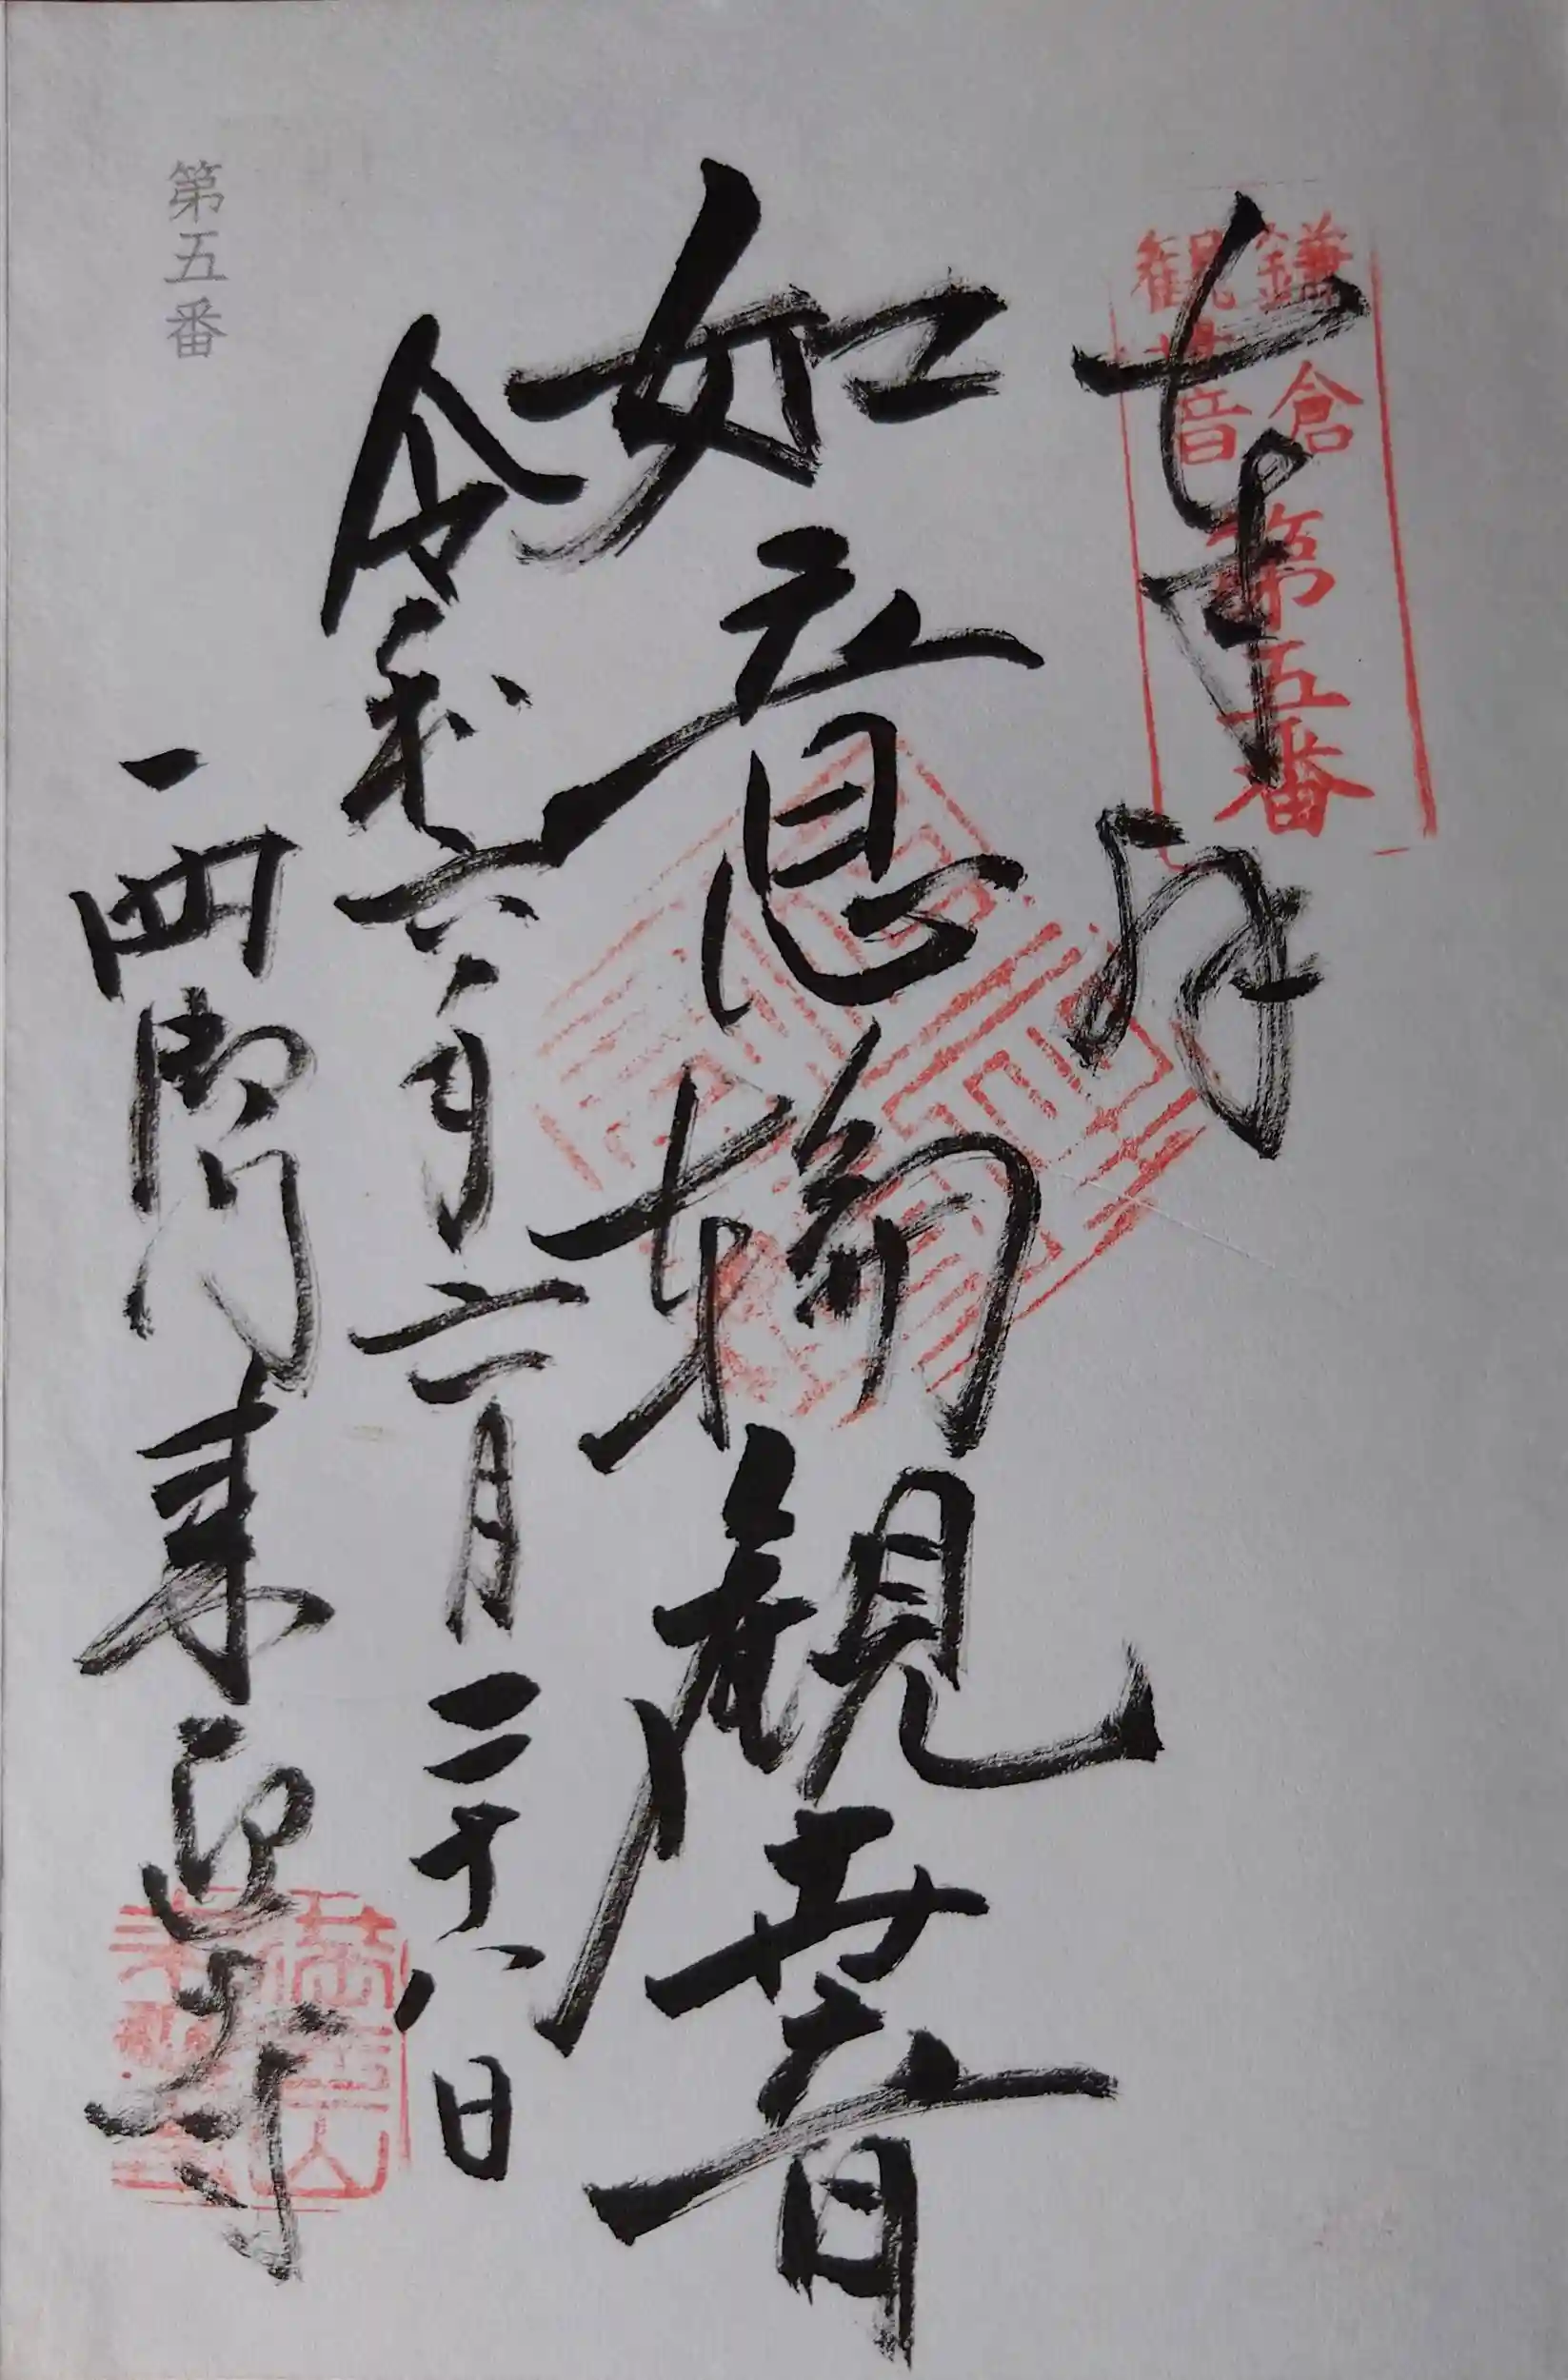 鎌倉
観世音
第五番
奉拝
如意輪観世音
令和六年六月二十八日
西御門来迎寺
満光山
来迎寺
第五番